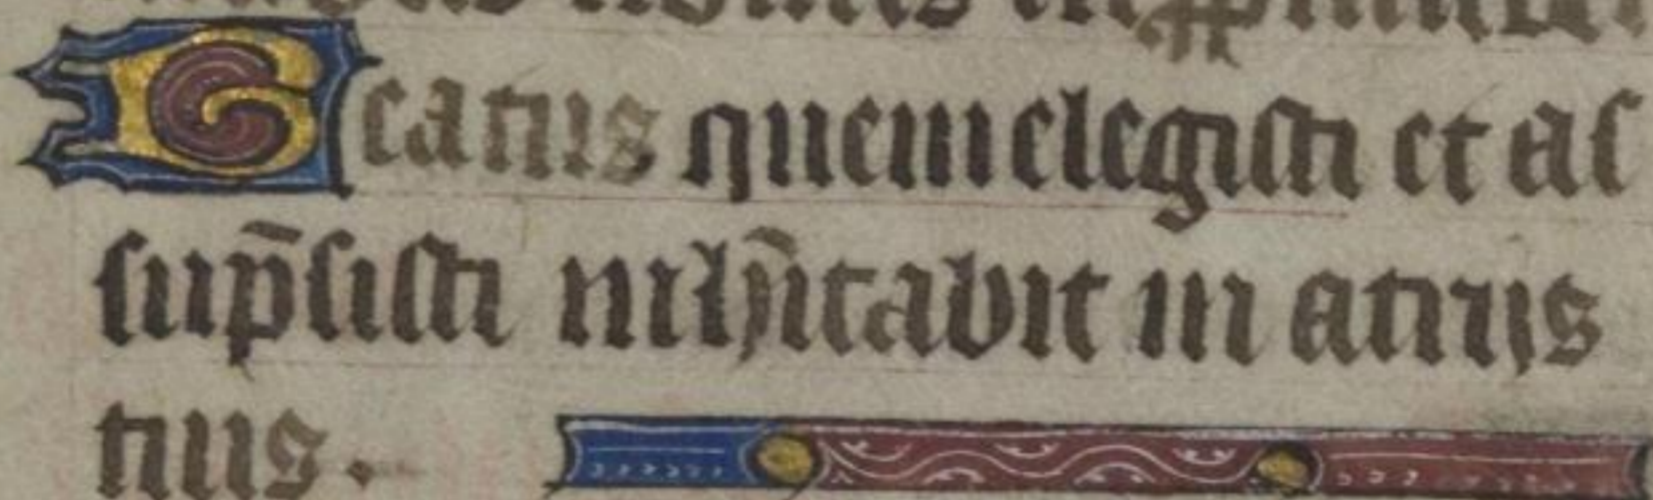 Ecatus quem elegisti et as
sup̄sisti inh̄itabit in atrijs
tuis.